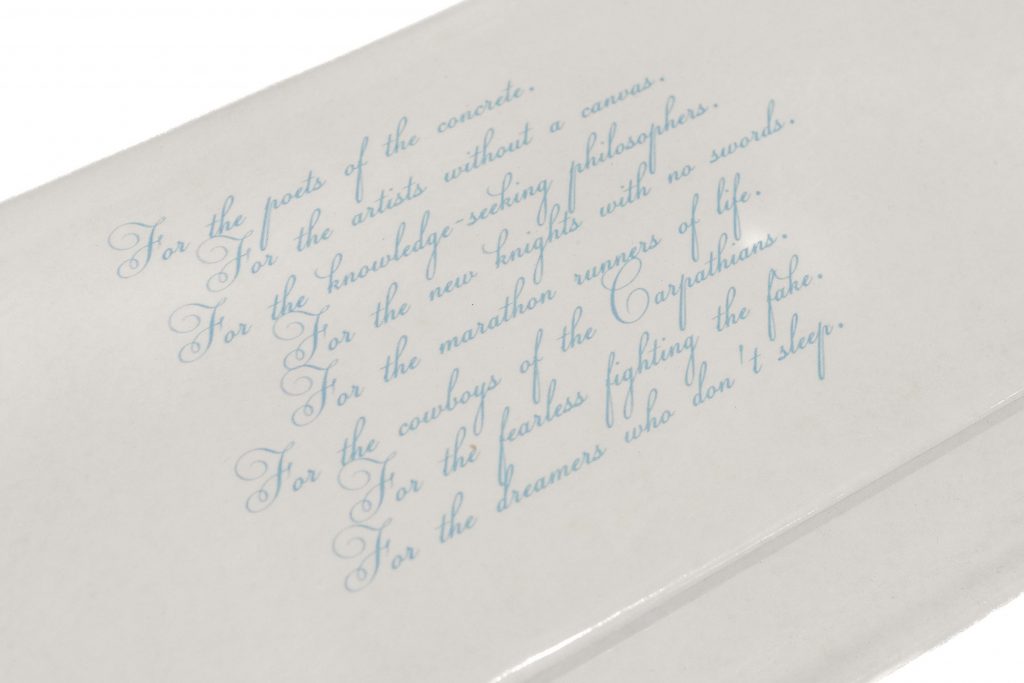 For the poets of the concrete.
For the artists without a canvas.
For the knowledge-seeking philosophers.
For the new knights with no swords.
For the marathon runners of life.
For the cowboys of the Carpathians.
For the fearless fighting the fake.
For the dreamers who don't sleep.